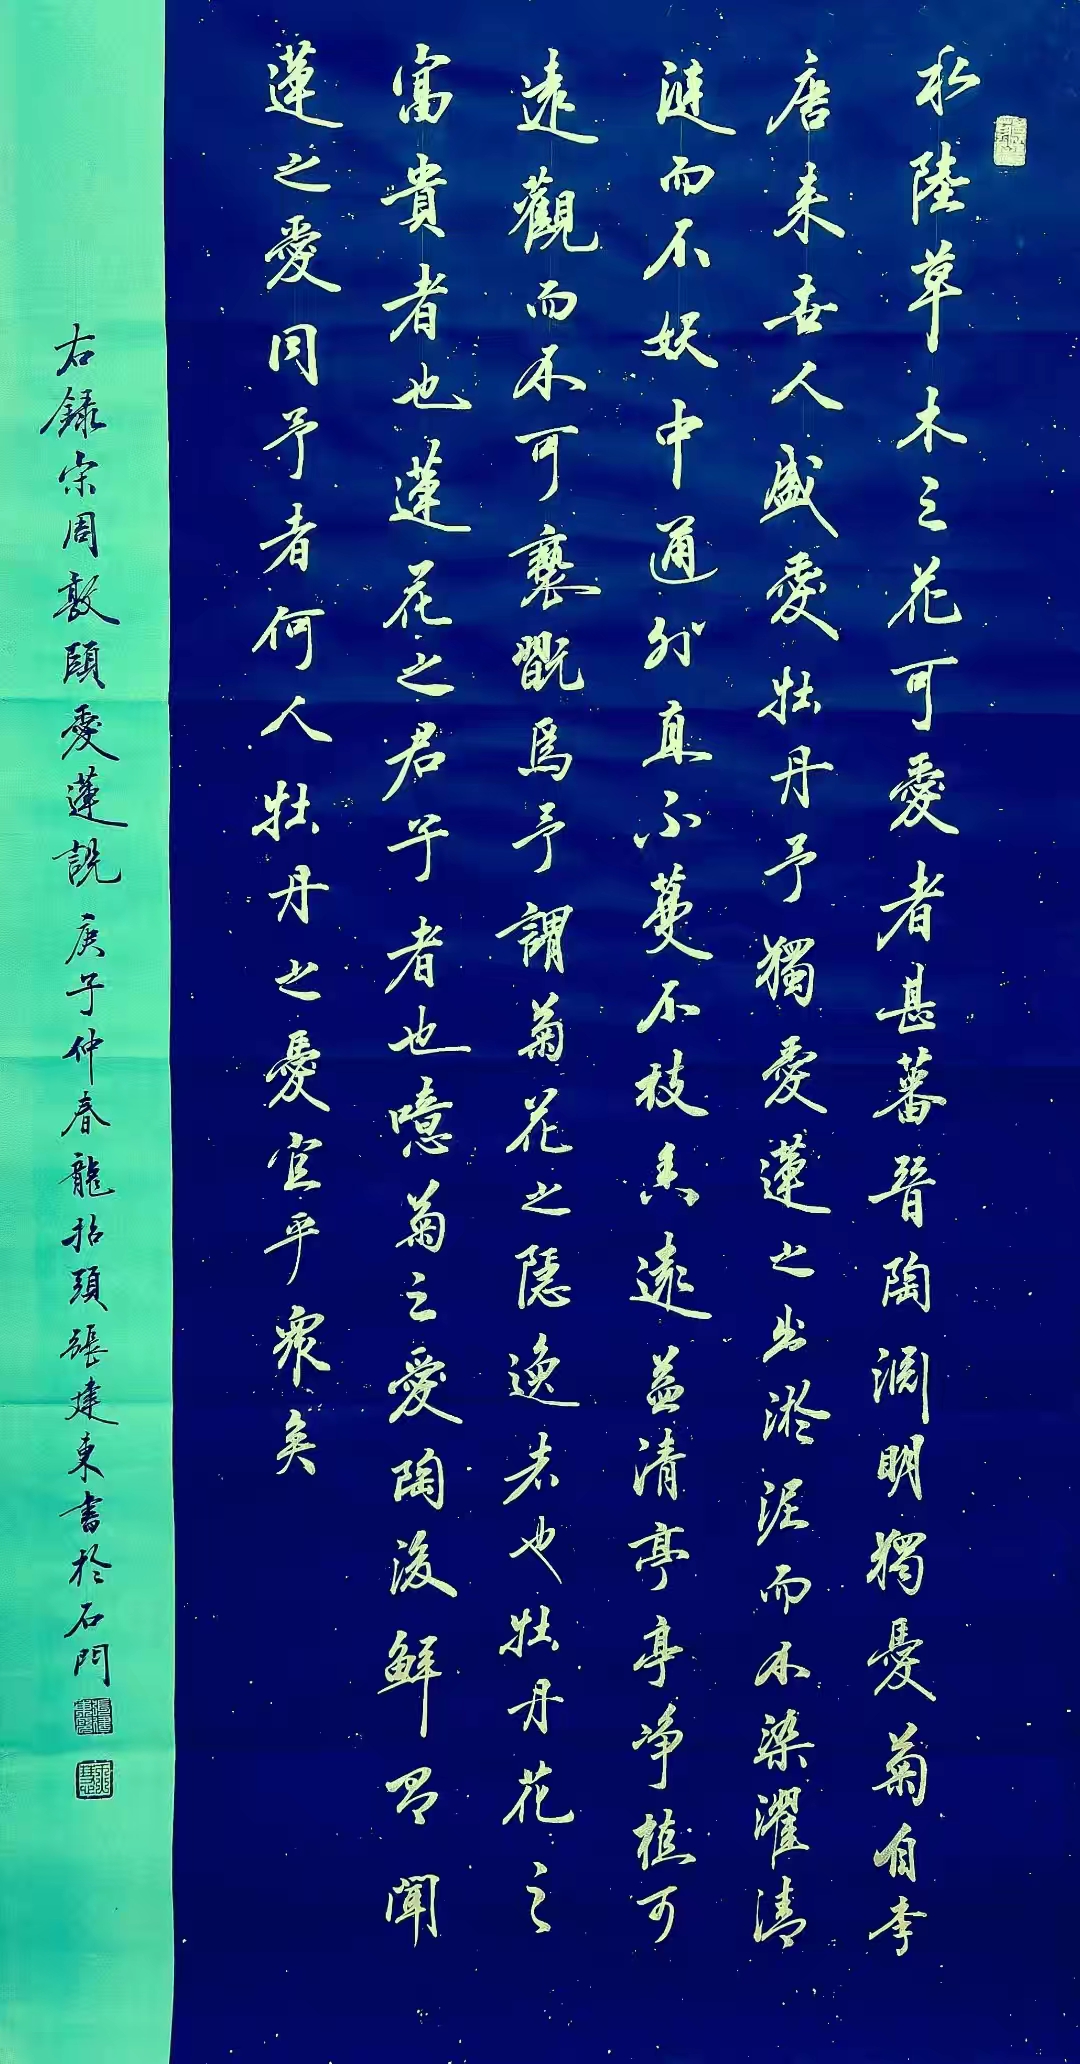 水陸草木之花可愛者甚蕃晉陶淵明獨愛菊自李
唐来世人盛愛牡丹予獨愛蓮之出淤泥而不染濯清
漣而不妖中通外直不蔓不枝香遠益清亭亭净植可
遠觀而不可褻翫焉予謂菊花之隱逸者也牡丹花之
富貴者也蓮花之君子者也噫菊之愛陶後鮮有聞
蓮之愛同予者何人牡丹之愛宜乎衆矣
右録宋周敦頤愛蓮説庚子仲春龍抬頭張建東書於石門